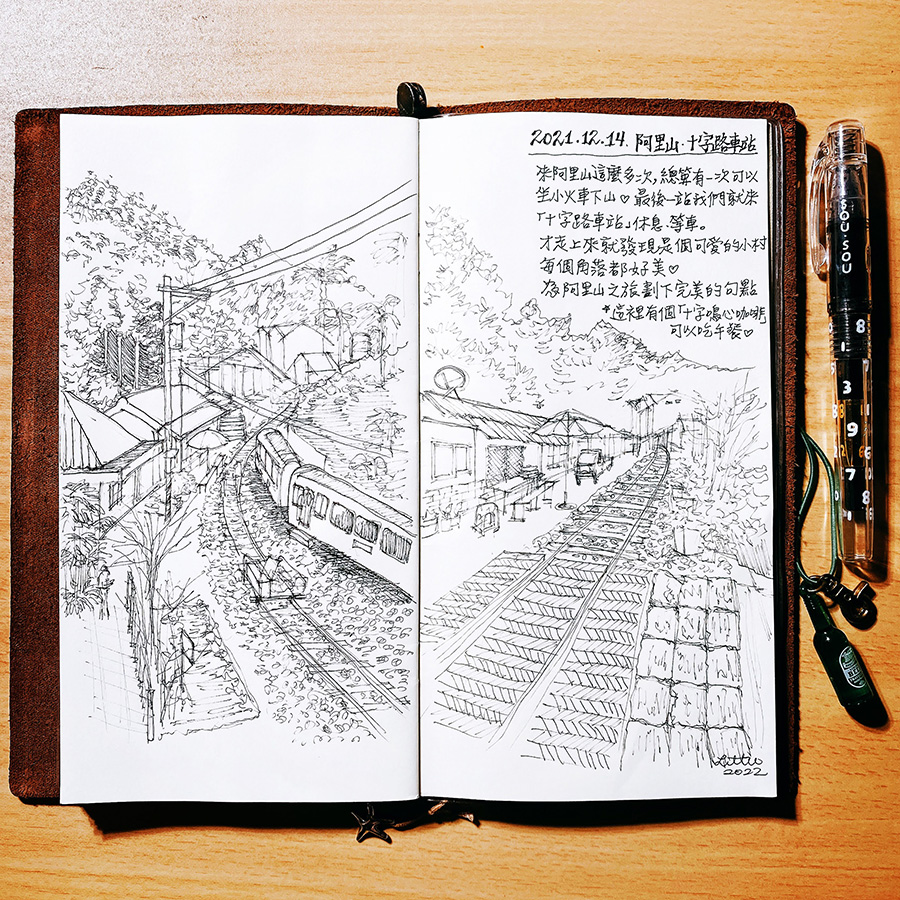 2021.12.14. 阿里山·十字路車站
來阿里山這麼多次,總算有一次可以
坐小火車下山♡最後一站我們就來
「十字路車站」休息、等車。
才走上來就發現是個可愛的小村
每個角落都好美♡
為阿里山之旅劃下完美的句點
*這裡有個「十字鳴心咖啡
可以吃午餐♡
2022
SOU·SOU
8
1
3
9
7
8